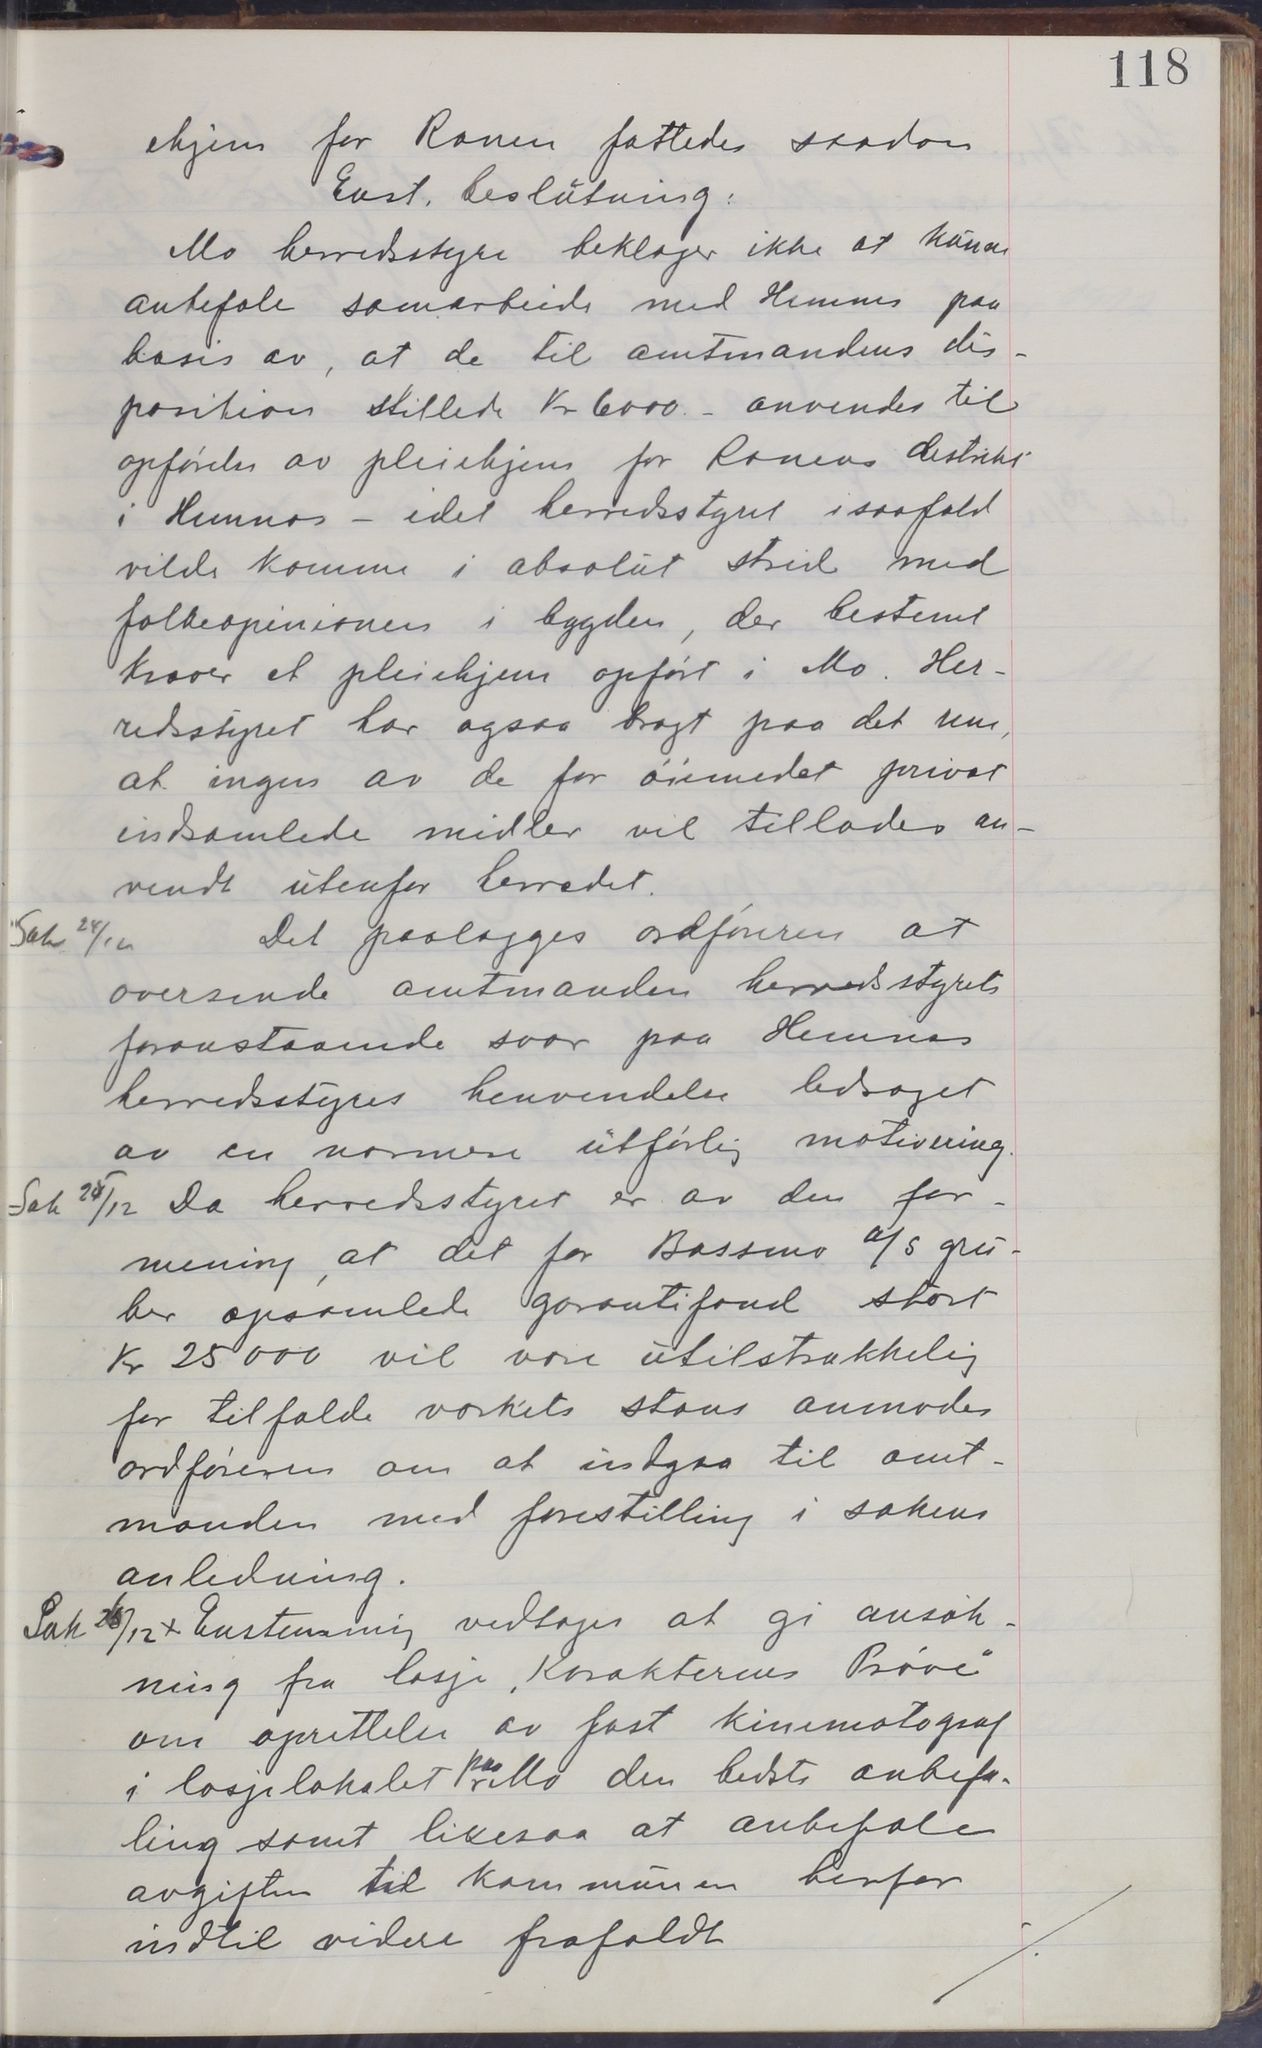 118
ehjem for Ranen fattedes saadan
Enst. beslutning:
Mo herredsstyre beklager ikke at kunne
anbefale samarbeide med Hemnes paa
basis av, at de til amtmandens dis-
position stillede Kr 6000.- anvendes til
opførelse av pleiehjem for Ranens distrikt
i Hemnes - idet herredsstyret isaafald
vilde komme i absolut strid med
folkeopinionen i bygden, der bestemt
kræver et pleiehjem opført i Mo. Her-
redsstyret har ogsaa bragt paa det rene,
at ingen av de for øiemedet privat
indsamlede midler vil tillades an-
vendt utenfor herredet.
Sak 24/12 Det paalægges ordføreren at
oversende amtmanden herredsstyrets
foranstaaende svar paa Hemnes
herredsstyres henvendelse ledsaget
av en nærmere utførlig motivering.
Sak 25/12 Da herredsstyret er av den for-
mening, at det for Bassmo a/s gru-
ber opsamlede garantifond stort
Kr 25000 vil være utilstrækkelig
for tilfælde verkets stans anmodes
ordføreren om at indgaa til amt-
manden med forestilling i sakens
anledning.
Sak 26/12 + Enstemmig vedtages at gi ansøk-
ning fra losje "Karakterens Prøve"
om oprettelse av fast kinematograf
i losjelokalet paa Mo den bedste anbefa-
ling samt likesaa at anbefale
avgiften til kommunen herfor
indtil videre frafaldt